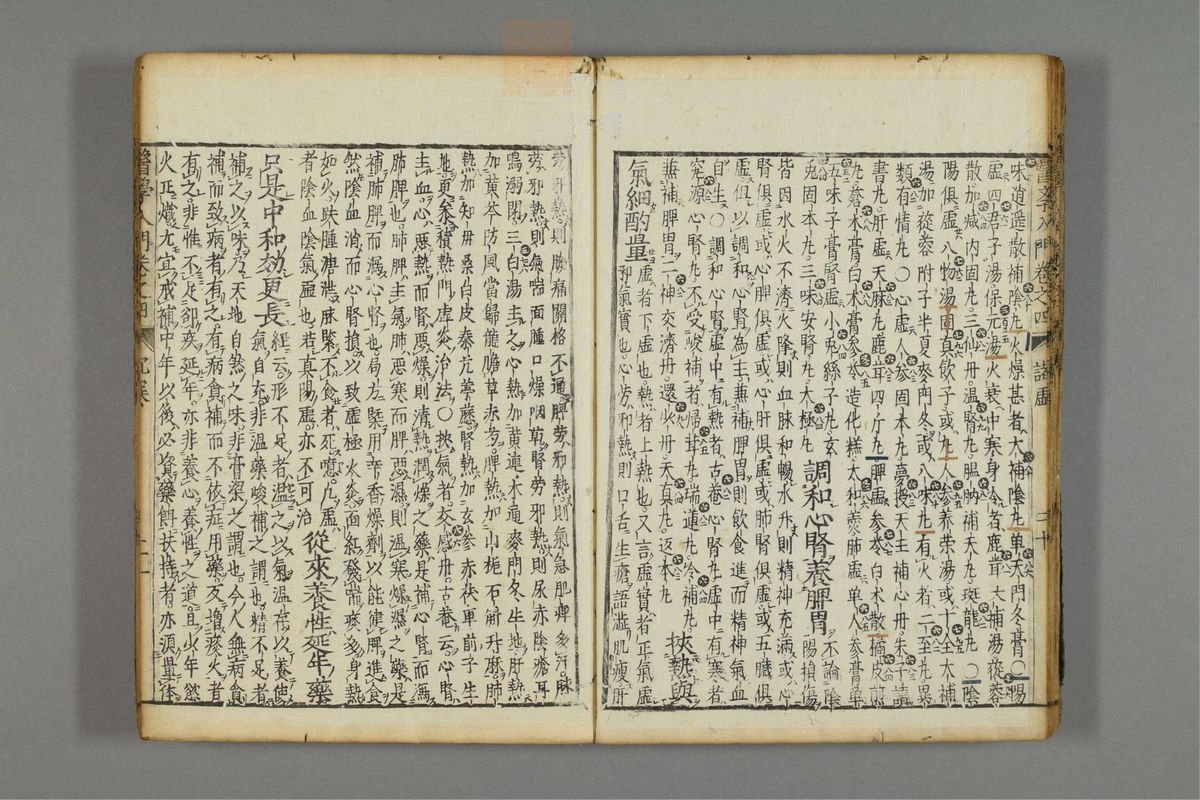 味逍遙散補陰丸火燥甚者大補陰丸单天門冬膏〇陽
虛四君子湯保元湯火衰中寒身冷者鹿茸大補湯蓯蓉
散加減内固丸三仙丹温腎丸膃肭補天丸斑龍丸〇陰
陽俱虛八物湯固真飲子或丸人參養荣湯或十全大補
湯加蓯蓉附子半夏麥門冬或八味丸有火者二至丸異
類有情丸〇心虛人參固本丸夢授天王補心丹朱子讀
書丸肝虛天麻丸鹿茸四斤丸脾虛參苓白术散橘皮煎
丸蒼术膏白术膏參苓造化糕太和羹肺虛单人參膏单
五味子膏腎虛小兎絲子丸玄
兎固本丸三味安腎丸太極丸
調和心腎養脾胃
不論陰
陽損傷
皆因水火不濟火降則血脉和暢水升則精神充滿或心
腎俱虛或心脾俱虛或心肝俱虛或肺腎俱虛或五臟俱
虛但以調和心腎為主兼補脾胃則飲食進而精神氣血
自生〇調和心腎虛中有熱者古庵心腎丸虛中有寒者
究源心腎丸不受峻補者歸茸丸瑞蓮丸冷補丸
兼補脾胃二神交濟丹還少丹天真丸返本丸
挾熱與
氣細酌量
虛者下虛也熱者上熱也又言虛實者正氣虛
邪氣實也心勞邪熱則口舌生瘡語澁肌瘦肝
勞邪熱則脇痛關格不通脾勞邪熱則氣急肌痺多汗肺
勞邪熱則氣喘面腫口燥咽乾腎勞邪熱則尿赤陰瘡耳
鳴溺閉三白湯主之心熱加黄連木通麥門冬生地肝熱
加黄芩防風當歸龍膽草赤芍脾熱加山梔石斛升麻肺
熱加知母桑白皮秦艽葶藶腎熱加玄參赤茯車前子生
地更叅積熱門虛炎治法〇挾氣者交感丹古庵云心腎
主血心惡熱而腎惡燥則清熱潤燥之藥是補心腎而瀉
肺脾也肺脾主氣肺惡寒而脾惡濕則温寒燥濕之藥是
補肺脾而瀉心腎也局方槩用辛香燥劑以能健脾進食
然陰血消而心腎損以致虛極火炎面紅發喘痰多身熱
如火跌腫溏泄脉緊不食者死噫凡虛
者陰血陰氣虛也若真陽虛亦不可治
從來養性延年藥
只是中和効更長
經云形不足者温之以氣温存以養使
氣自充非温藥峻補之謂也精不足者
補之以味乃天地自然之味非膏粱之謂也今人無病食
補而致病者有之有病食補而不依症用藥反增痰火者
有之非惟不足却疾延年亦非養心養性之道且少年慾
火正熾尤宜戒補中年以後必資藥餌扶持者亦湏量体